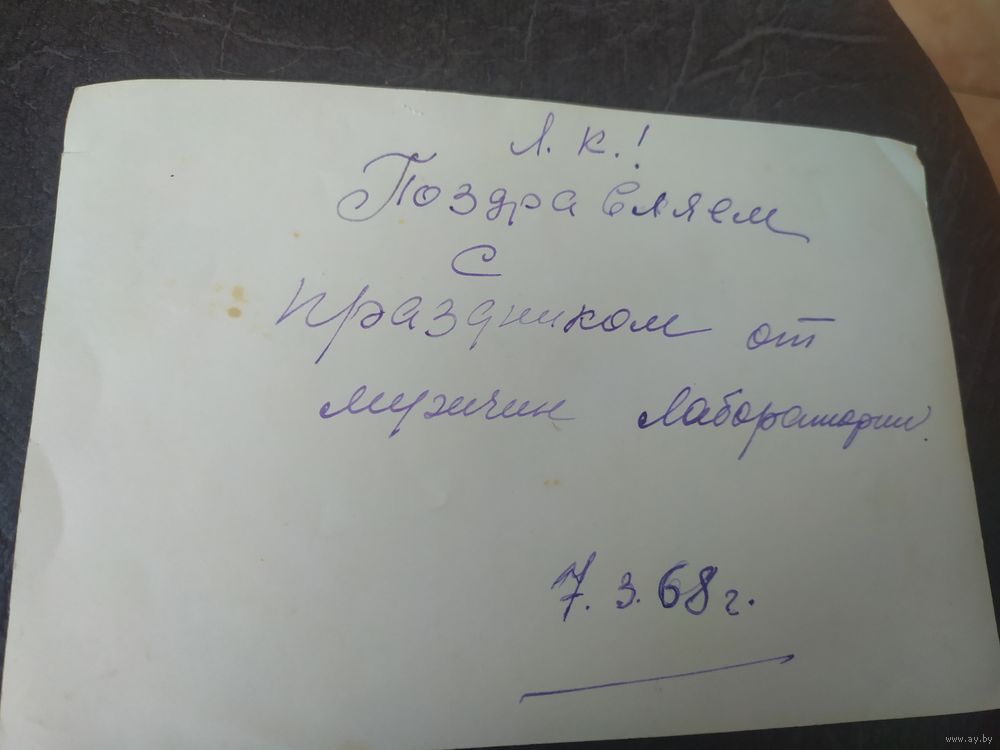 Л. К.!
Поздравляем
с
праздником от
мужчин лаборатории.
7.3.68 г.
www.ay.by